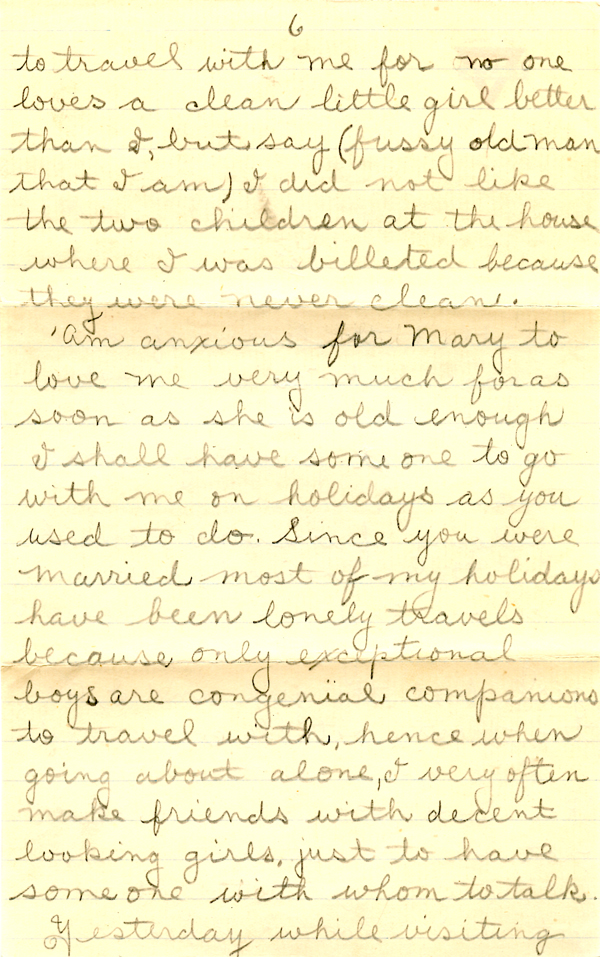 6
to travel with me for no one
loves a clean little girl better
than I, but say (fussy old man
that I am) I did not like
the two children at the house
where I was billeted because
they were never clean.
Am anxious for Mary to
love me very much for as
soon as she is old enough
I shall have some one to go
with me on holidays as you
used to do. Since you were
married most of my holidays
have been lonely travels
because only exceptional
boys are congenial companions
to travel with, hence when
going about alone, I very often
make friends with decent
looking girls, just to have
some one with whom to talk.
Yesterday while visiting